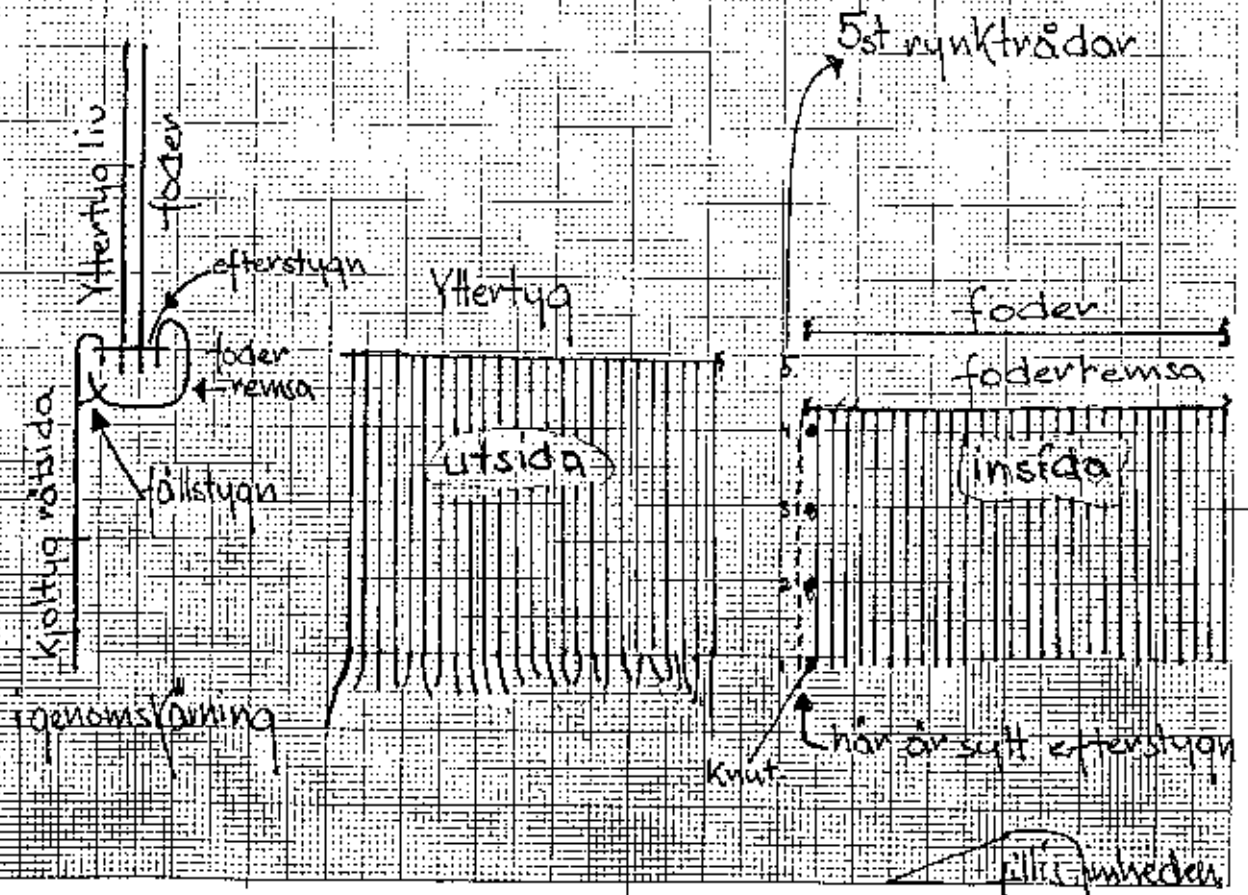 5st rynktrådar
Yttertyg liv
foder
efterstygn
Yttertyg
foder
foder
remsa
foderremsa
utsida
insida
fållstygn
Kjoltyg rätsida
5
4
3
2
1
igenomskärning
Knut
här är sytt efterstygn